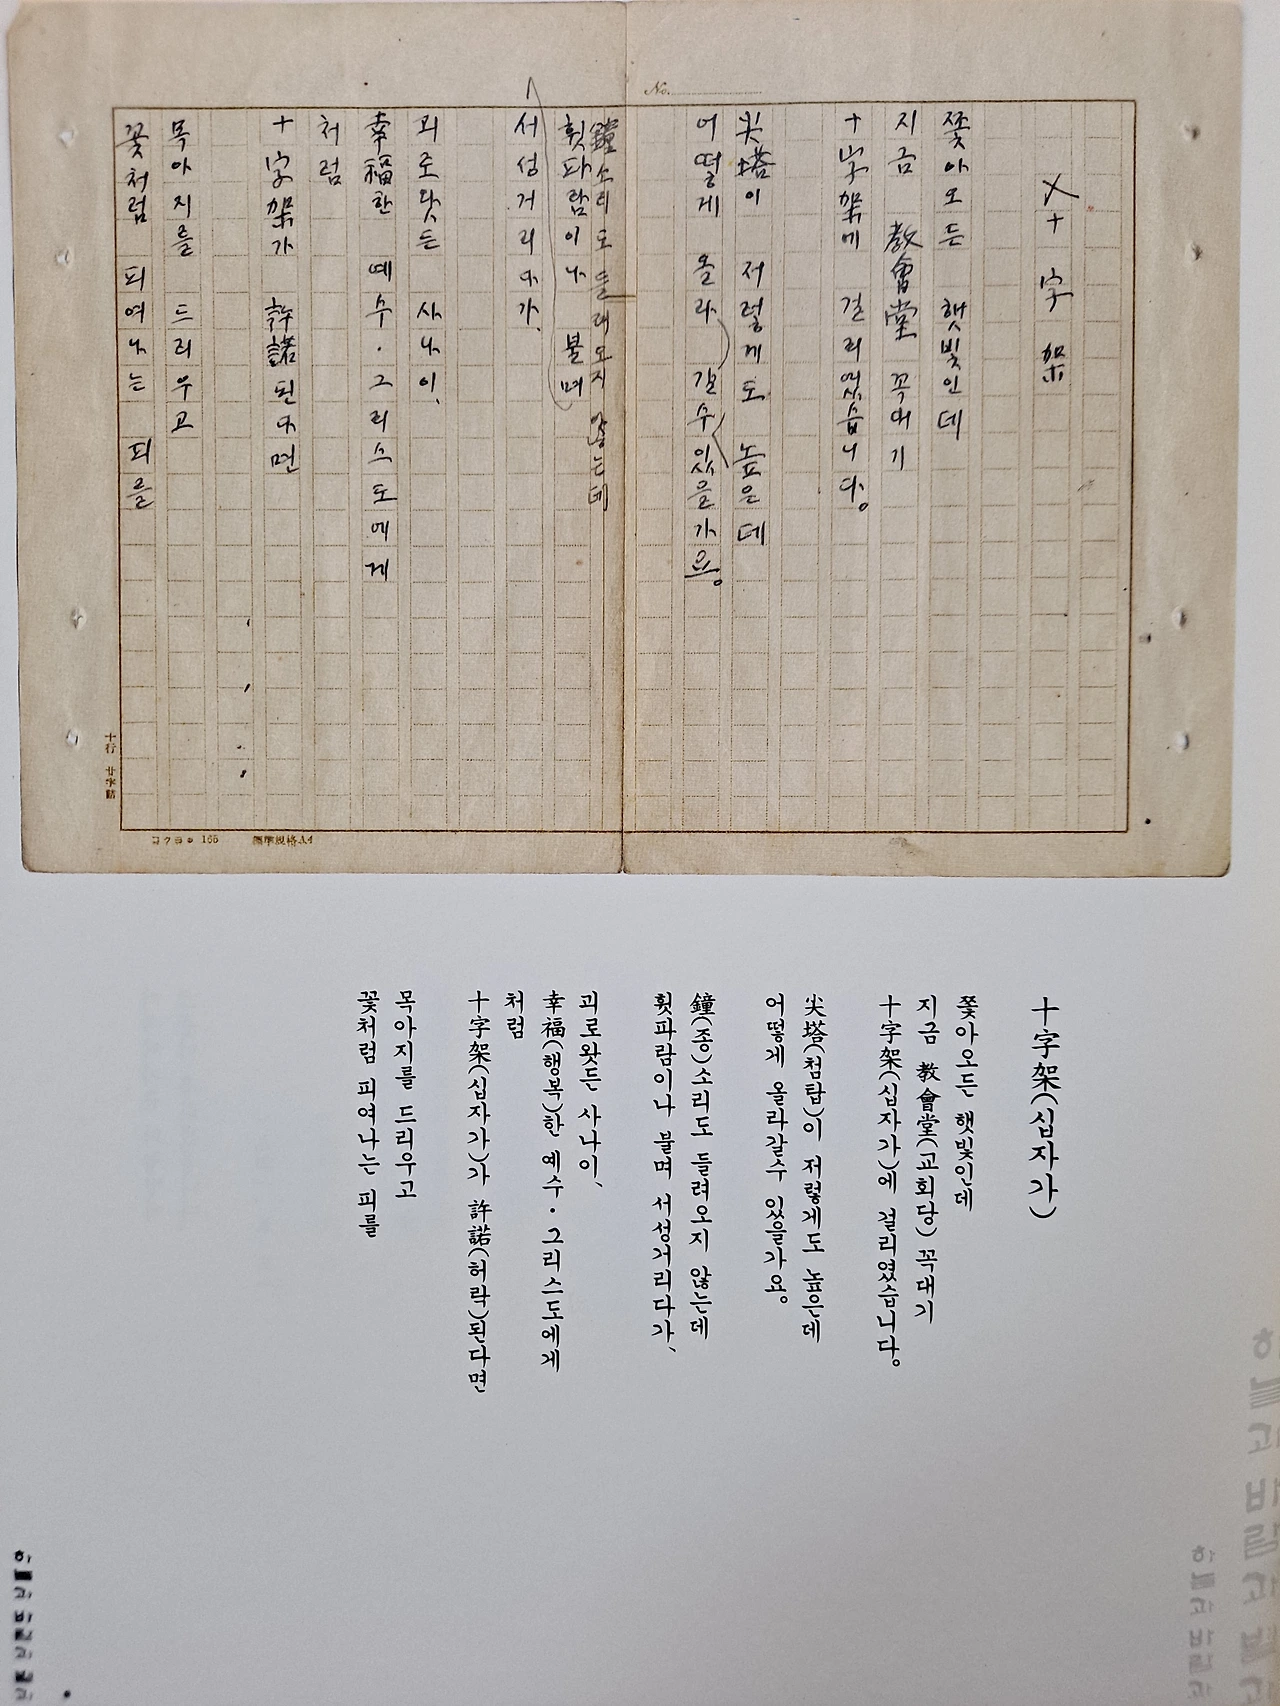 No.
十字架
쫓아오든 햇빛인데
지금 敎會堂 꼭대기
十字架에 걸리였습니다。
尖塔이 저렇게도 높은데
어떻게 올라갈수 있을가요。
鐘소리도 들려오지 않는데
휫파람이나 불며
서성거리다가、
괴로왓든 사나이、
幸福한 예수·그리스도에게
처럼
十字架가 許諾된다면
목아지를 드리우고
꽃처럼 피여나는 피를
十行 廿字詰
コクヨ 165 標準規格A4
十字架(십자가)
쫓아오든 햇빛인데
지금 敎會堂(교회당) 꼭대기
十字架(십자가)에 걸리였습니다。
尖塔(첨탑)이 저렇게도 높은데
어떻게 올라갈수 있을가요。
鐘(종)소리도 들려오지 않는데
휫파람이나 불며 서성거리다가、
괴로왓든 사나이、
幸福(행복)한 예수·그리스도에게
처럼
十字架(십자가)가 許諾(허락)된다면
목아지를 드리우고
꽃처럼 피여나는 피를
하늘과 바람과 별과
하늘과 바람과
하늘과 바람과 별과